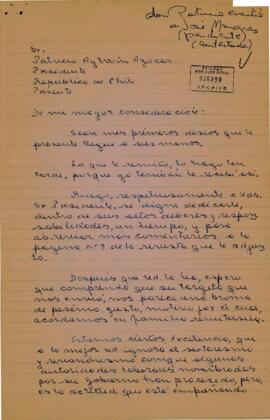 don Patricio
a José
(pendiente)
(contestada)
Sr.
Patricio Aylwin Azócar.
Presidente
República de Chile
Presente
ARCHIVO
De mi mayor consideración:
Sean mis primeros deseos que la
presente llegue a sus manos.
Lo que le remito, lo hago tan
tarde, porque yo también lo recibí así.
Ruego, respetuosamente a Ud.
Sr Presidente, se digne dedicarle,
dentro de sus altos deberes y respon
sabilidades, un tiempo, y para
ahorrar más comentarios, a la
página Nº 7 de la revista que le adjun
to.
Después que Ud. la lea, espero
que comprenda que su tarjeta que
nos envió, nos parece una broma
de pésimo gusto, motivo por el cual,
acordamos en familia remitírsela.
Estamos ciertos Excelencia, que
a lo mejor Ud. ignora el sectarismo
y revanchismo conque algunas
autoridades laborales nombradas
por su gobierno han procesado, pero,
es la actitud que está empañando